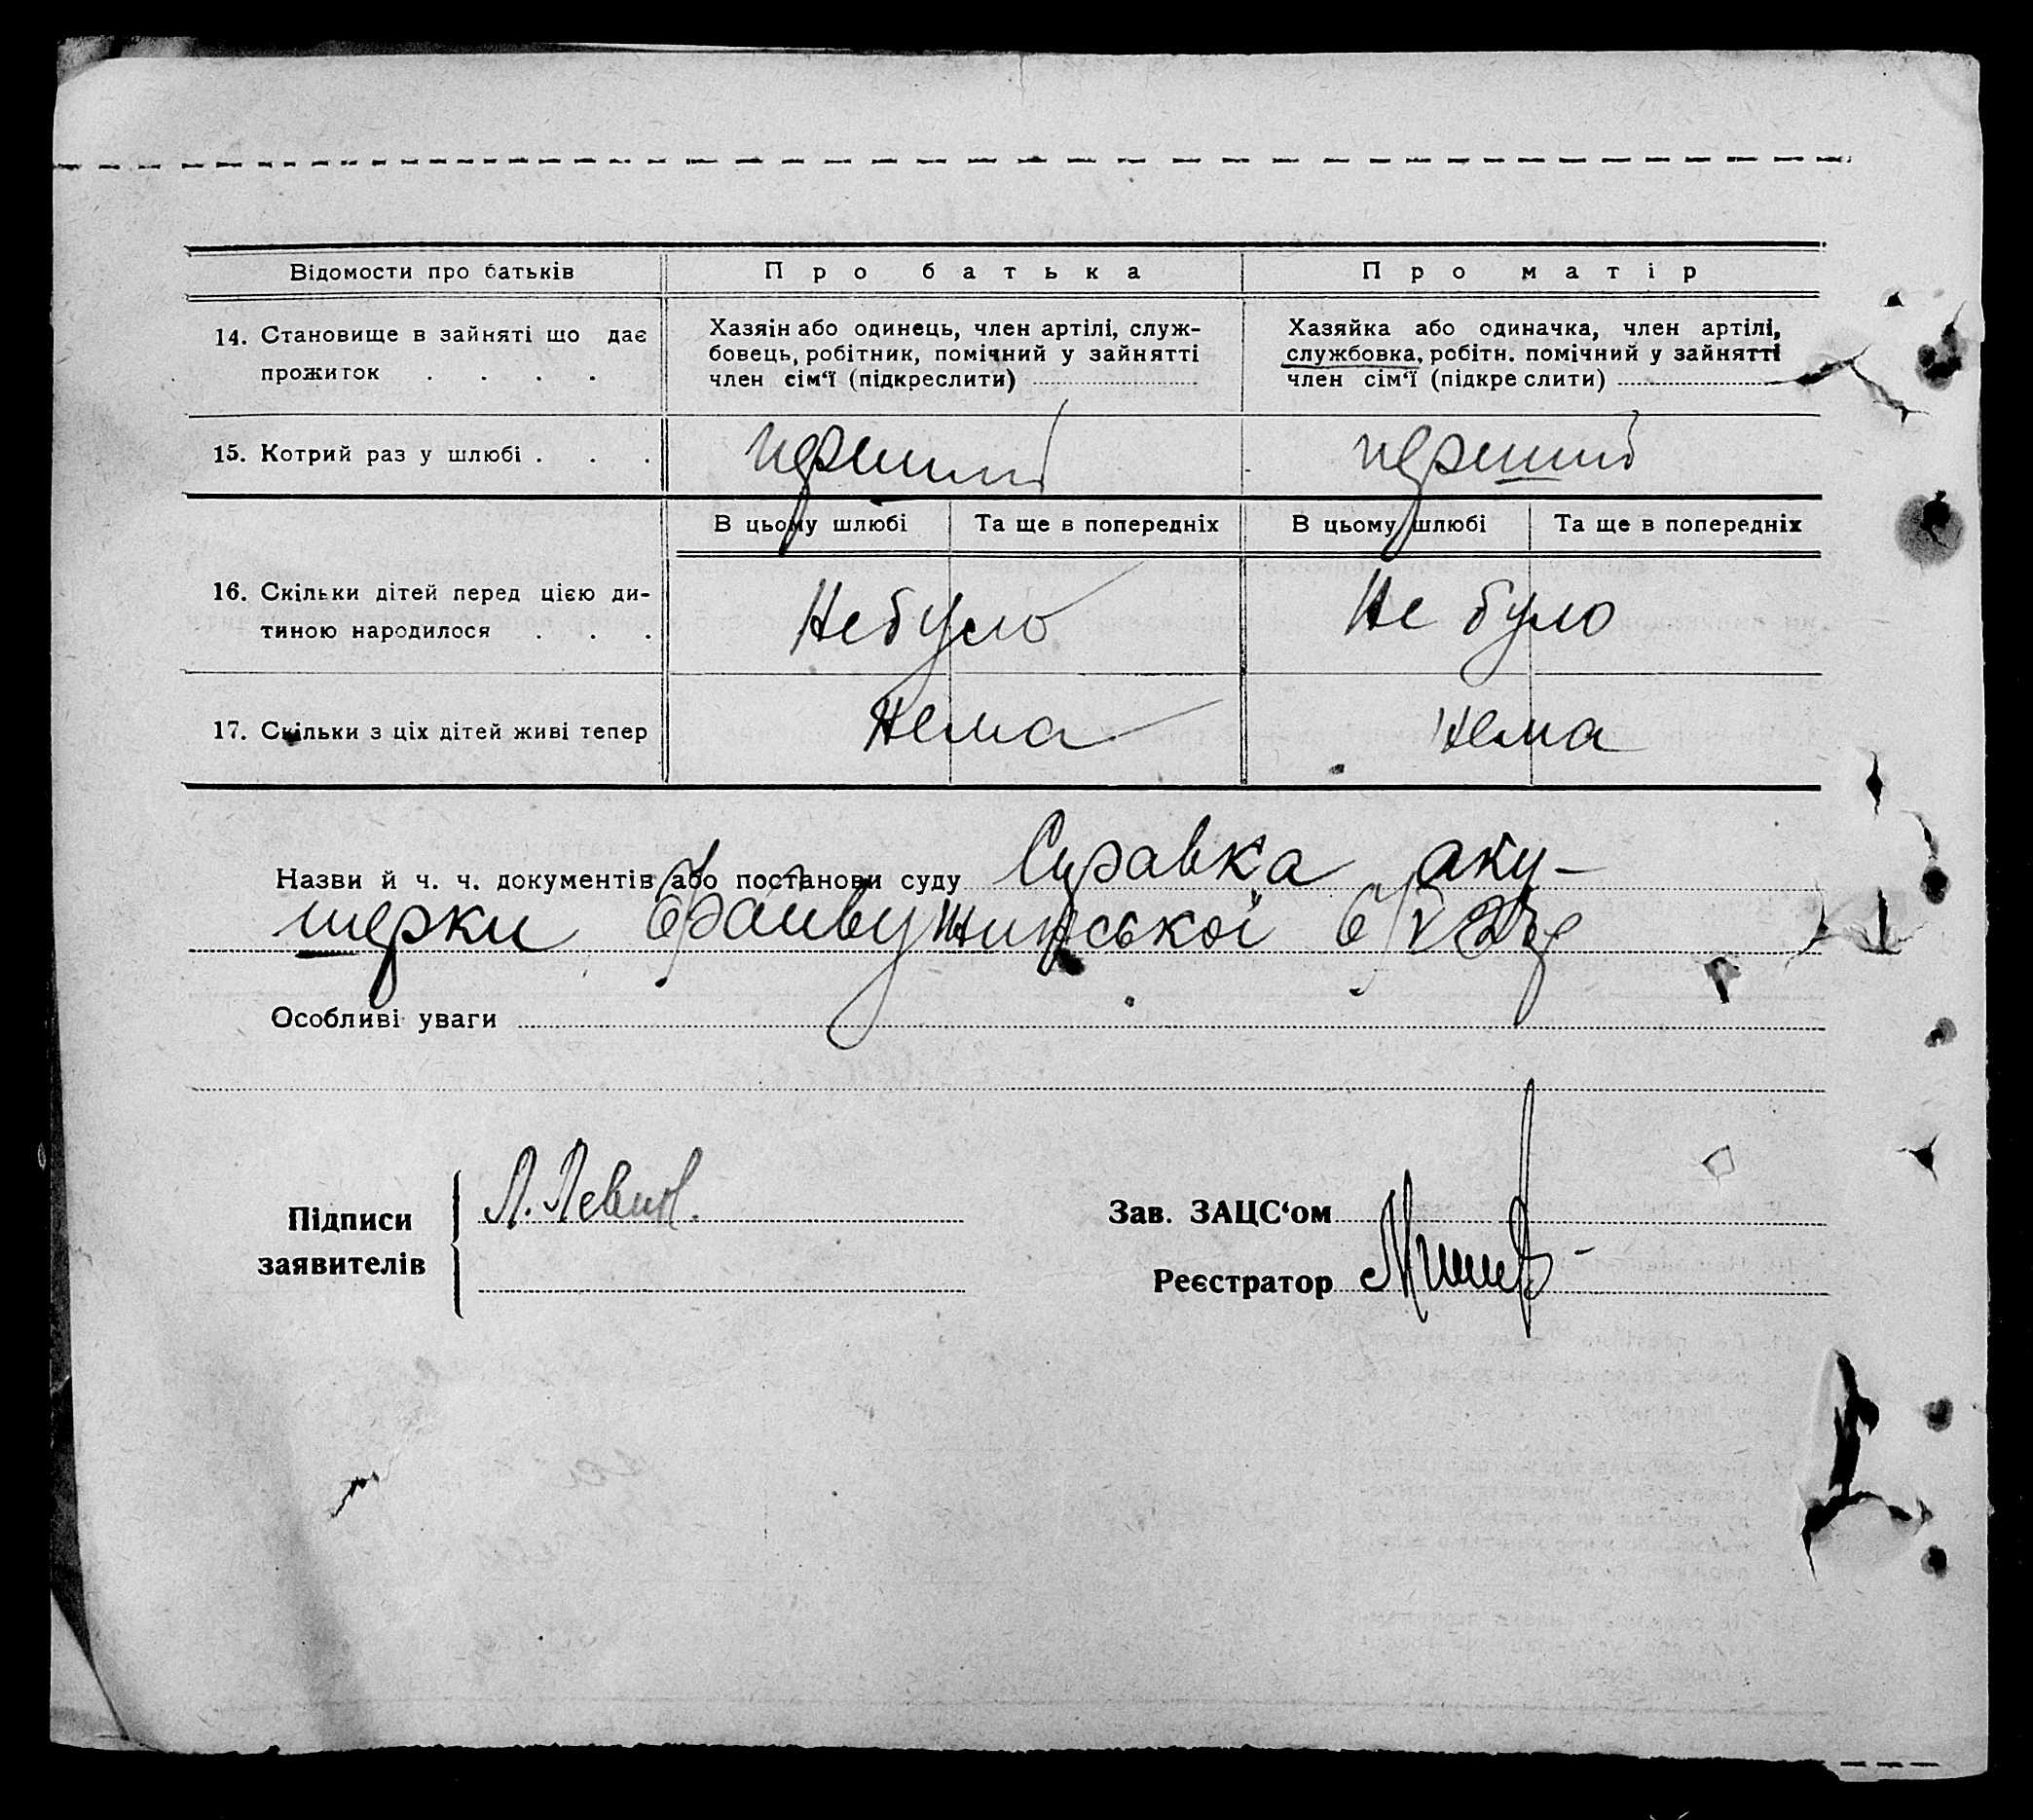 Відомости про батьків
Про батька
Про матір
14. Становище в зайняті що дає
прожиток . . . .
Хазяін або одинець, член артілі, служ-
бовець, робітник, помічний у зайнятті
член сім‘ї (підкреслити)
Хазяйка або одиначка, член артілі,
службовка, робітн. помічний у зайнятті
член сім‘ї (підкре слити)
15. Котрий раз у шлюбі . . .
перший
перший
В цьому шлюбі
Та ще в попередніх
В цьому шлюбі
Та ще в попередніх
16. Скільки дітей перед цією ди-
тиною народилося . . .
Не було
Не було
17. Скільки з ціх дітей живі тепер
Нема
Нема
Назви й ч. ч. документів або постанови суду Справка аку-
шерки
Особливі уваги
Підписи
заявителів
Л. Левин.
Зав. ЗАЦС‘ом
Реєстратор